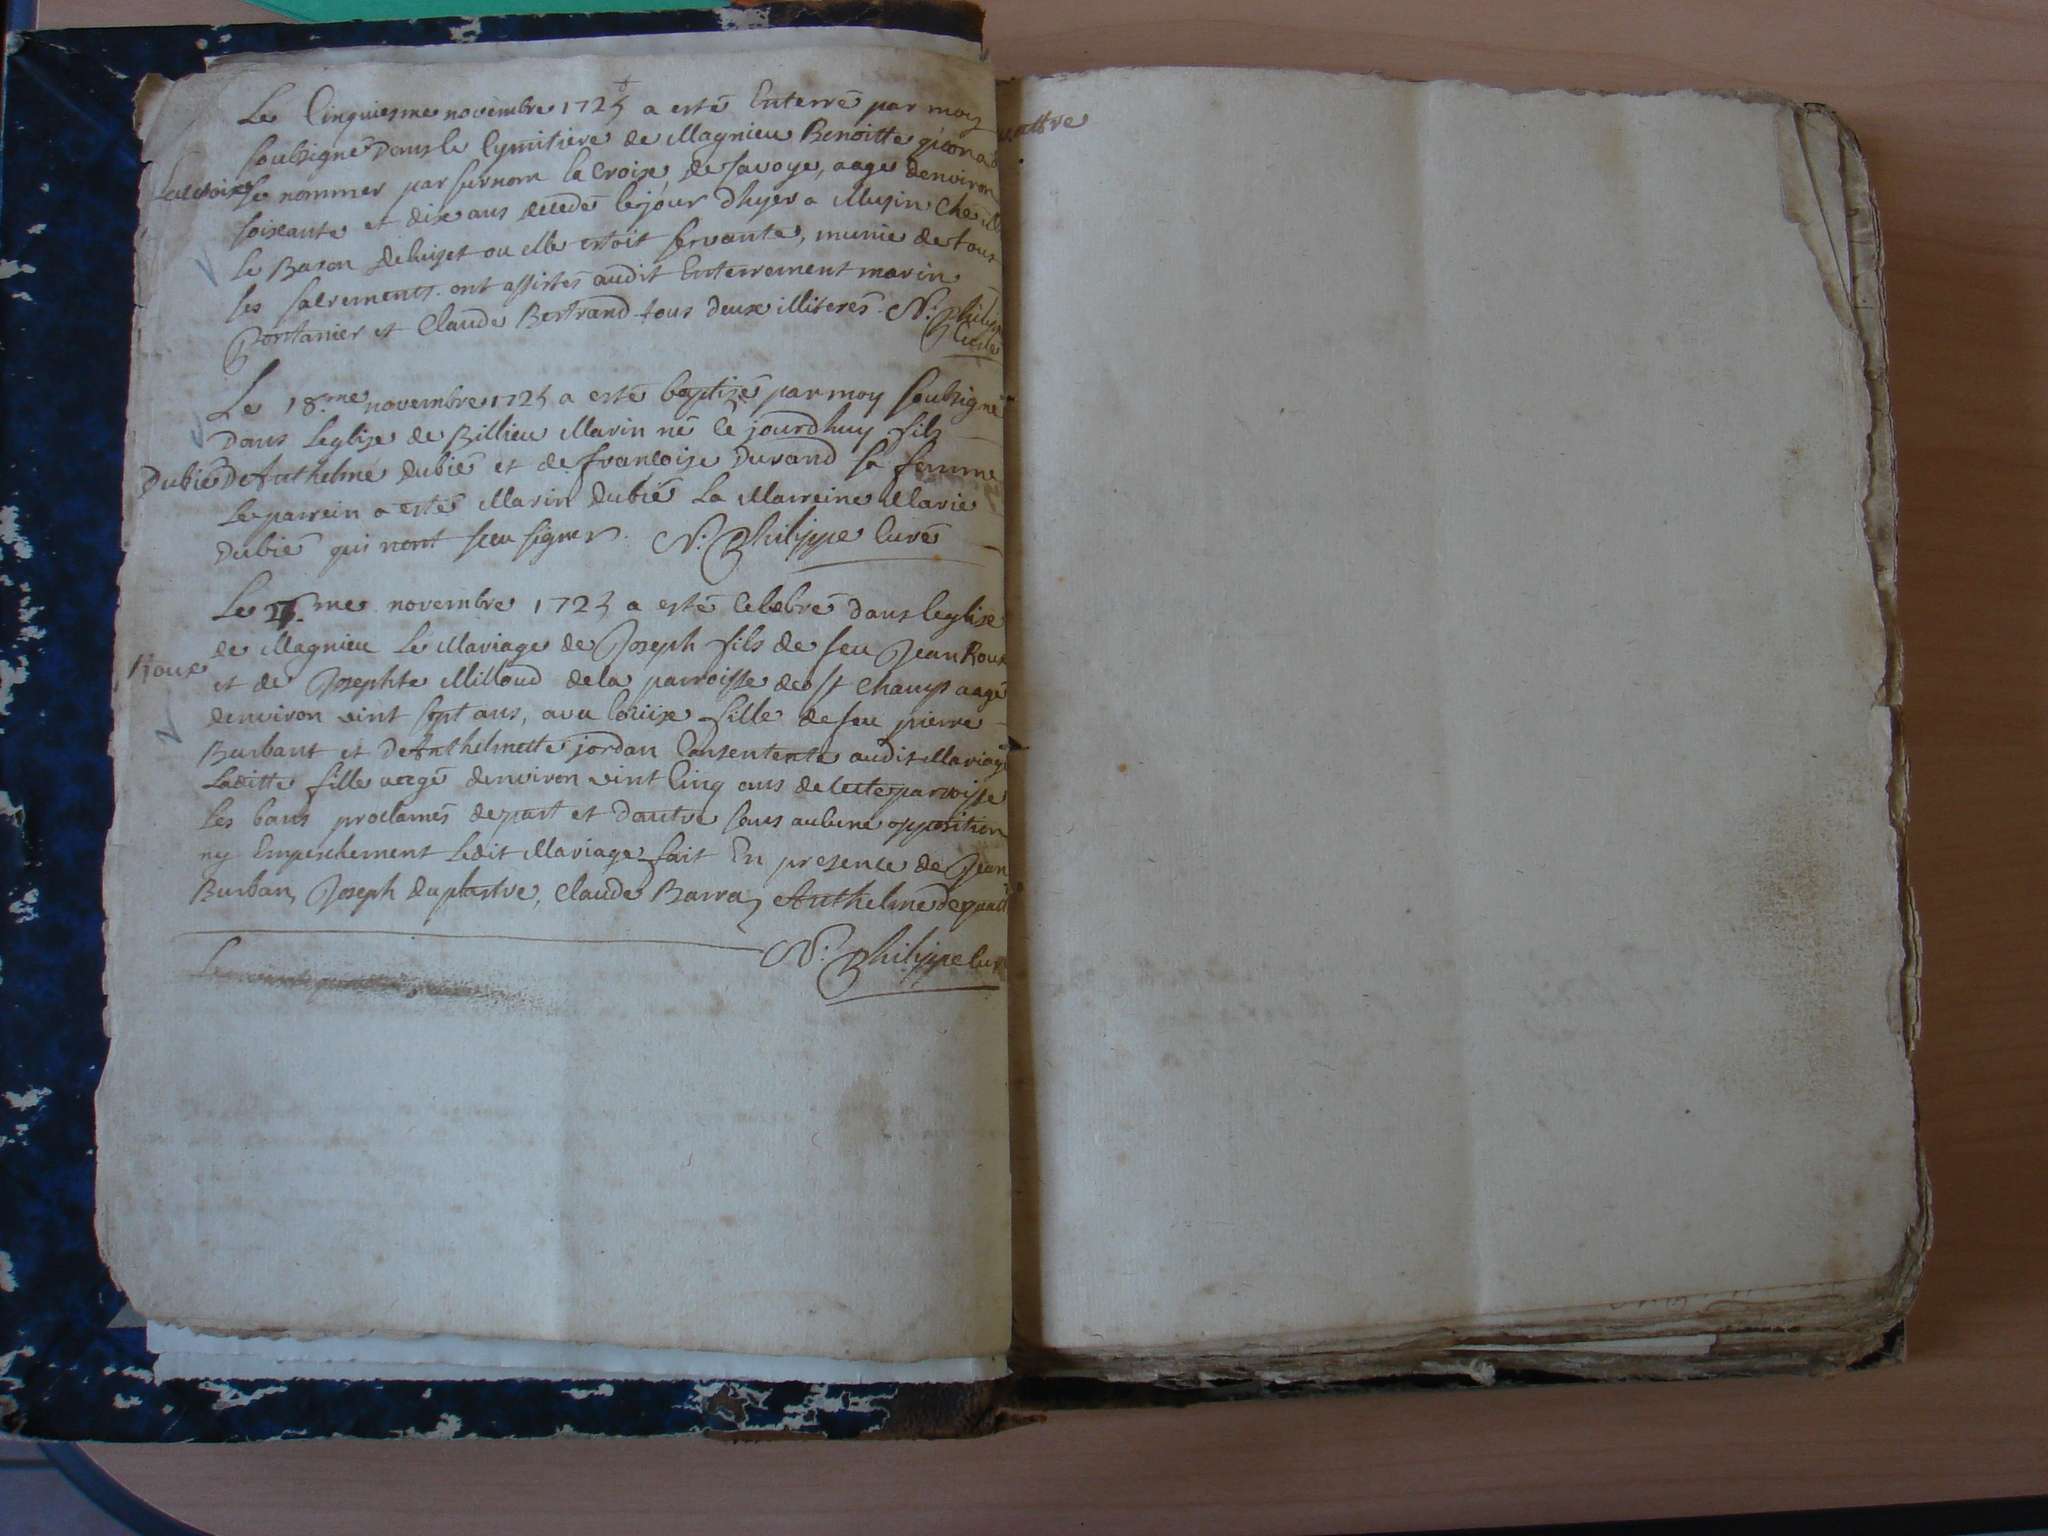 Le Cinquiesme novembre 1725 a esté Enterré par moy
soubsigné Dans le Cymitiere de Magnieu Benoitte qu'on a
se nommer par surnom la Croix, de Savoye, aagée denviron
Lacroix
soixante et dix ans decedée le jour dhyer a Musin Ché Mr
le Baron de luiset ou elle estoit servante, munie de tous
les sacrements. ont assistés audit Enterrement marin
Pontanier et Claude Bertrand tous deux illiterés. N. Philippe
Curé
Le 18.me novembre 1725 a esté baptisé par moy soubsigné
Dans Leglise de Billieu Marin né Ce jourdhuy fils
Dubié
De Anthelme Dubié et de francoise Durand sa femme
Le parrein a esté Marin Dubié La Marreine Marie
Dubié qui nont sceu signer. N. Philippe Curé
Le me novembre 1725 a esté Celebré dans leglise
de Magnieu Le Mariage de Joseph fils de feu Jean Roux
Roux
et de Josephte Milloud de la parroisse de St Champ aagé
denviron vint sept ans, avec Loüise fille de feu pierre
Burbant et de Anthelmette jordan Consentente audit Mariage
Laditte fille aagé denviron vint Cinq ans de cette parroisse
les bans proclamés de part et dautre sans aucune opposition
ny Empeschement ledit Mariage fait En presence de Jean
Burban, Joseph duplastre, Claude Barra, Anthelme
N. Philippe Curé
Le